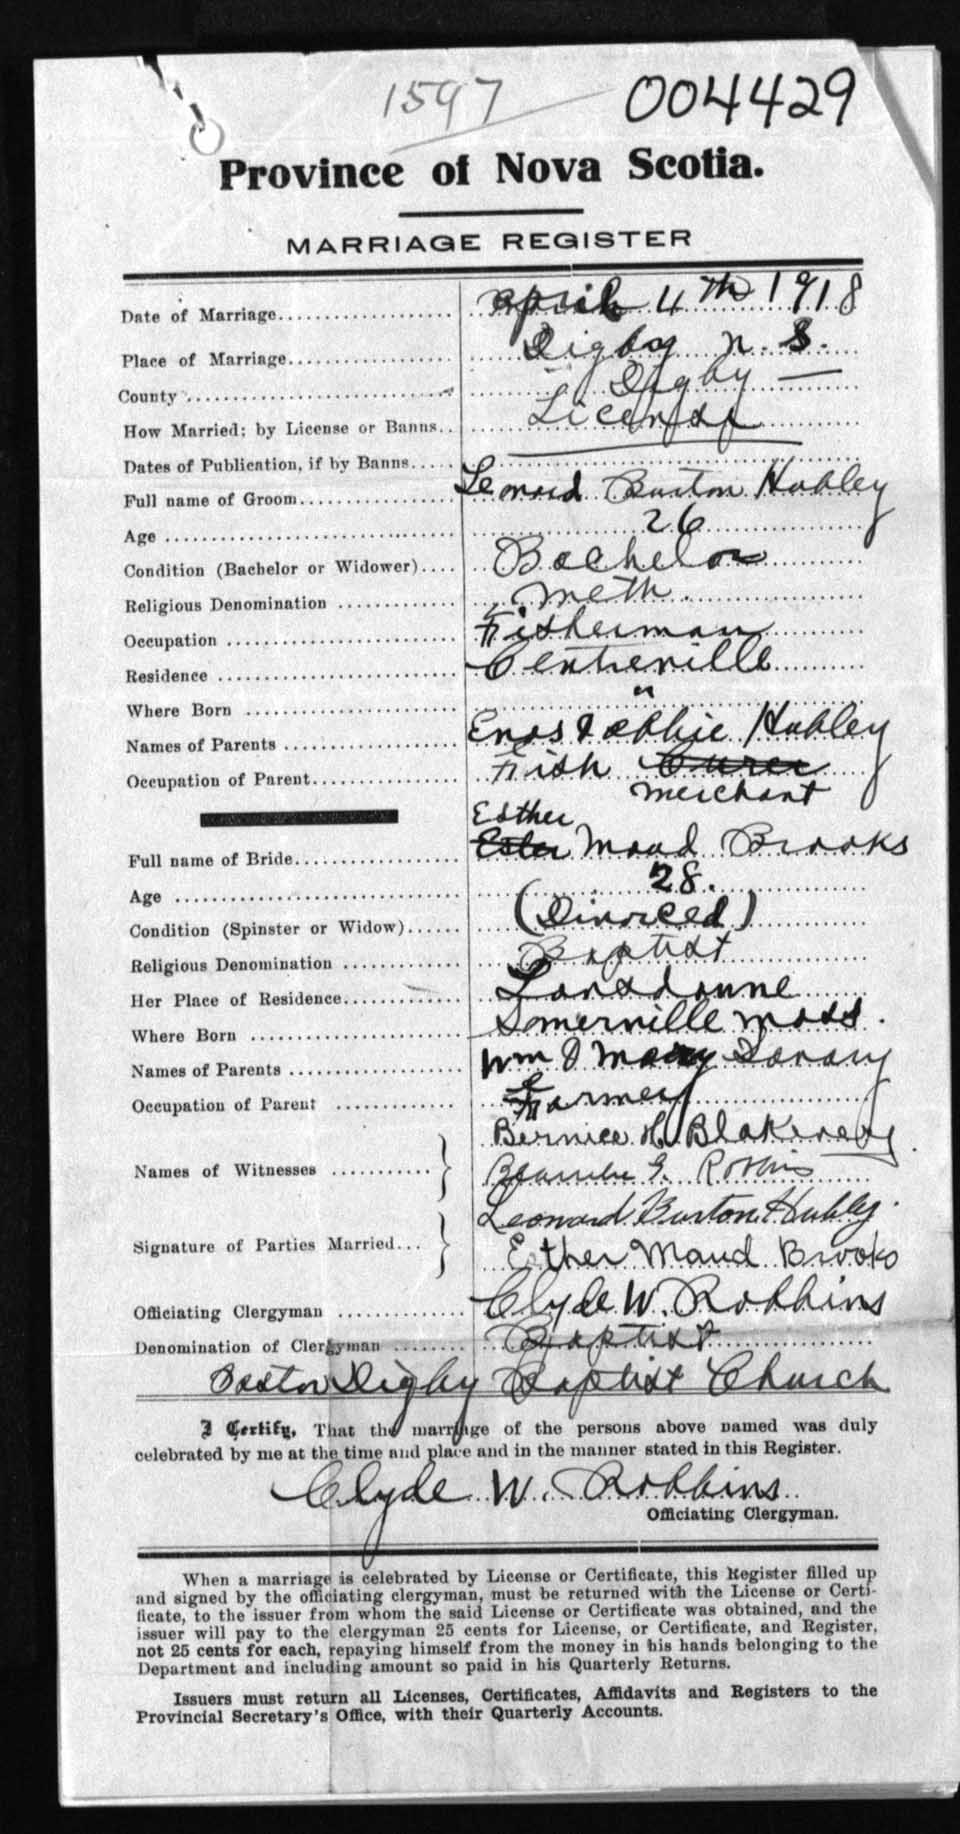 1597
004429
Province of Nova Scotia.
MARRIAGE REGISTER
Date of Marriage April 4th 1918
Place of Marriage Digby N.S.
County Digby
How Married; by License or Banns License
Dates of Publication, if by Banns
Full name of Groom Leonard Burton Hubley
Age 26
Condition (Bachelor or Widower) Bachelor
Religious Denomination Meth.
Occupation Fisherman
Residence Centreville
Where Born "
Names of Parents Enos & Hubley
Occupation of Parent Fish Curer
Merchant
Esther
Full name of Bride Ester Maud Brooks
Age 28.
Condition (Spinster or Widow) (Divorced)
Religious Denomination Baptist
Her Place of Residence Lansdowne
Where Born Somerville Mass.
Names of Parents Wm & Mary
Occupation of Parent Farmer
Bernice H. Blakeney
Names of Witnesses
Robbins
Leonard Burton Hubley.
Signature of Parties Married
Esther Maud Brooks
Officiating Clergyman Clyde W. Robbins
Denomination of Clergyman Baptist
Pastor Digby Baptist Church
I Certify, That the marriage of the persons above named was duly
celebrated by me at the time and place and in the manner stated in this Register.
Clyde W. Robbins
Officiating Clergyman.
When a marriage is celebrated by License or Certificate, this Register filled up
and signed by the officiating clergyman, must be returned with the License or Certi-
ficate, to the issuer from whom the said License or Certificate was obtained, and the
issuer will pay to the clergyman 25 cents for License, or Certificate, and Register,
not 25 cents for each, repaying himself from the money in his hands belonging to the
Department and including amount so paid in his Quarterly Returns.
Issuers must return all Licenses, Certificates, Affidavits and Registers to the
Provincial Secretary's Office, with their Quarterly Accounts.